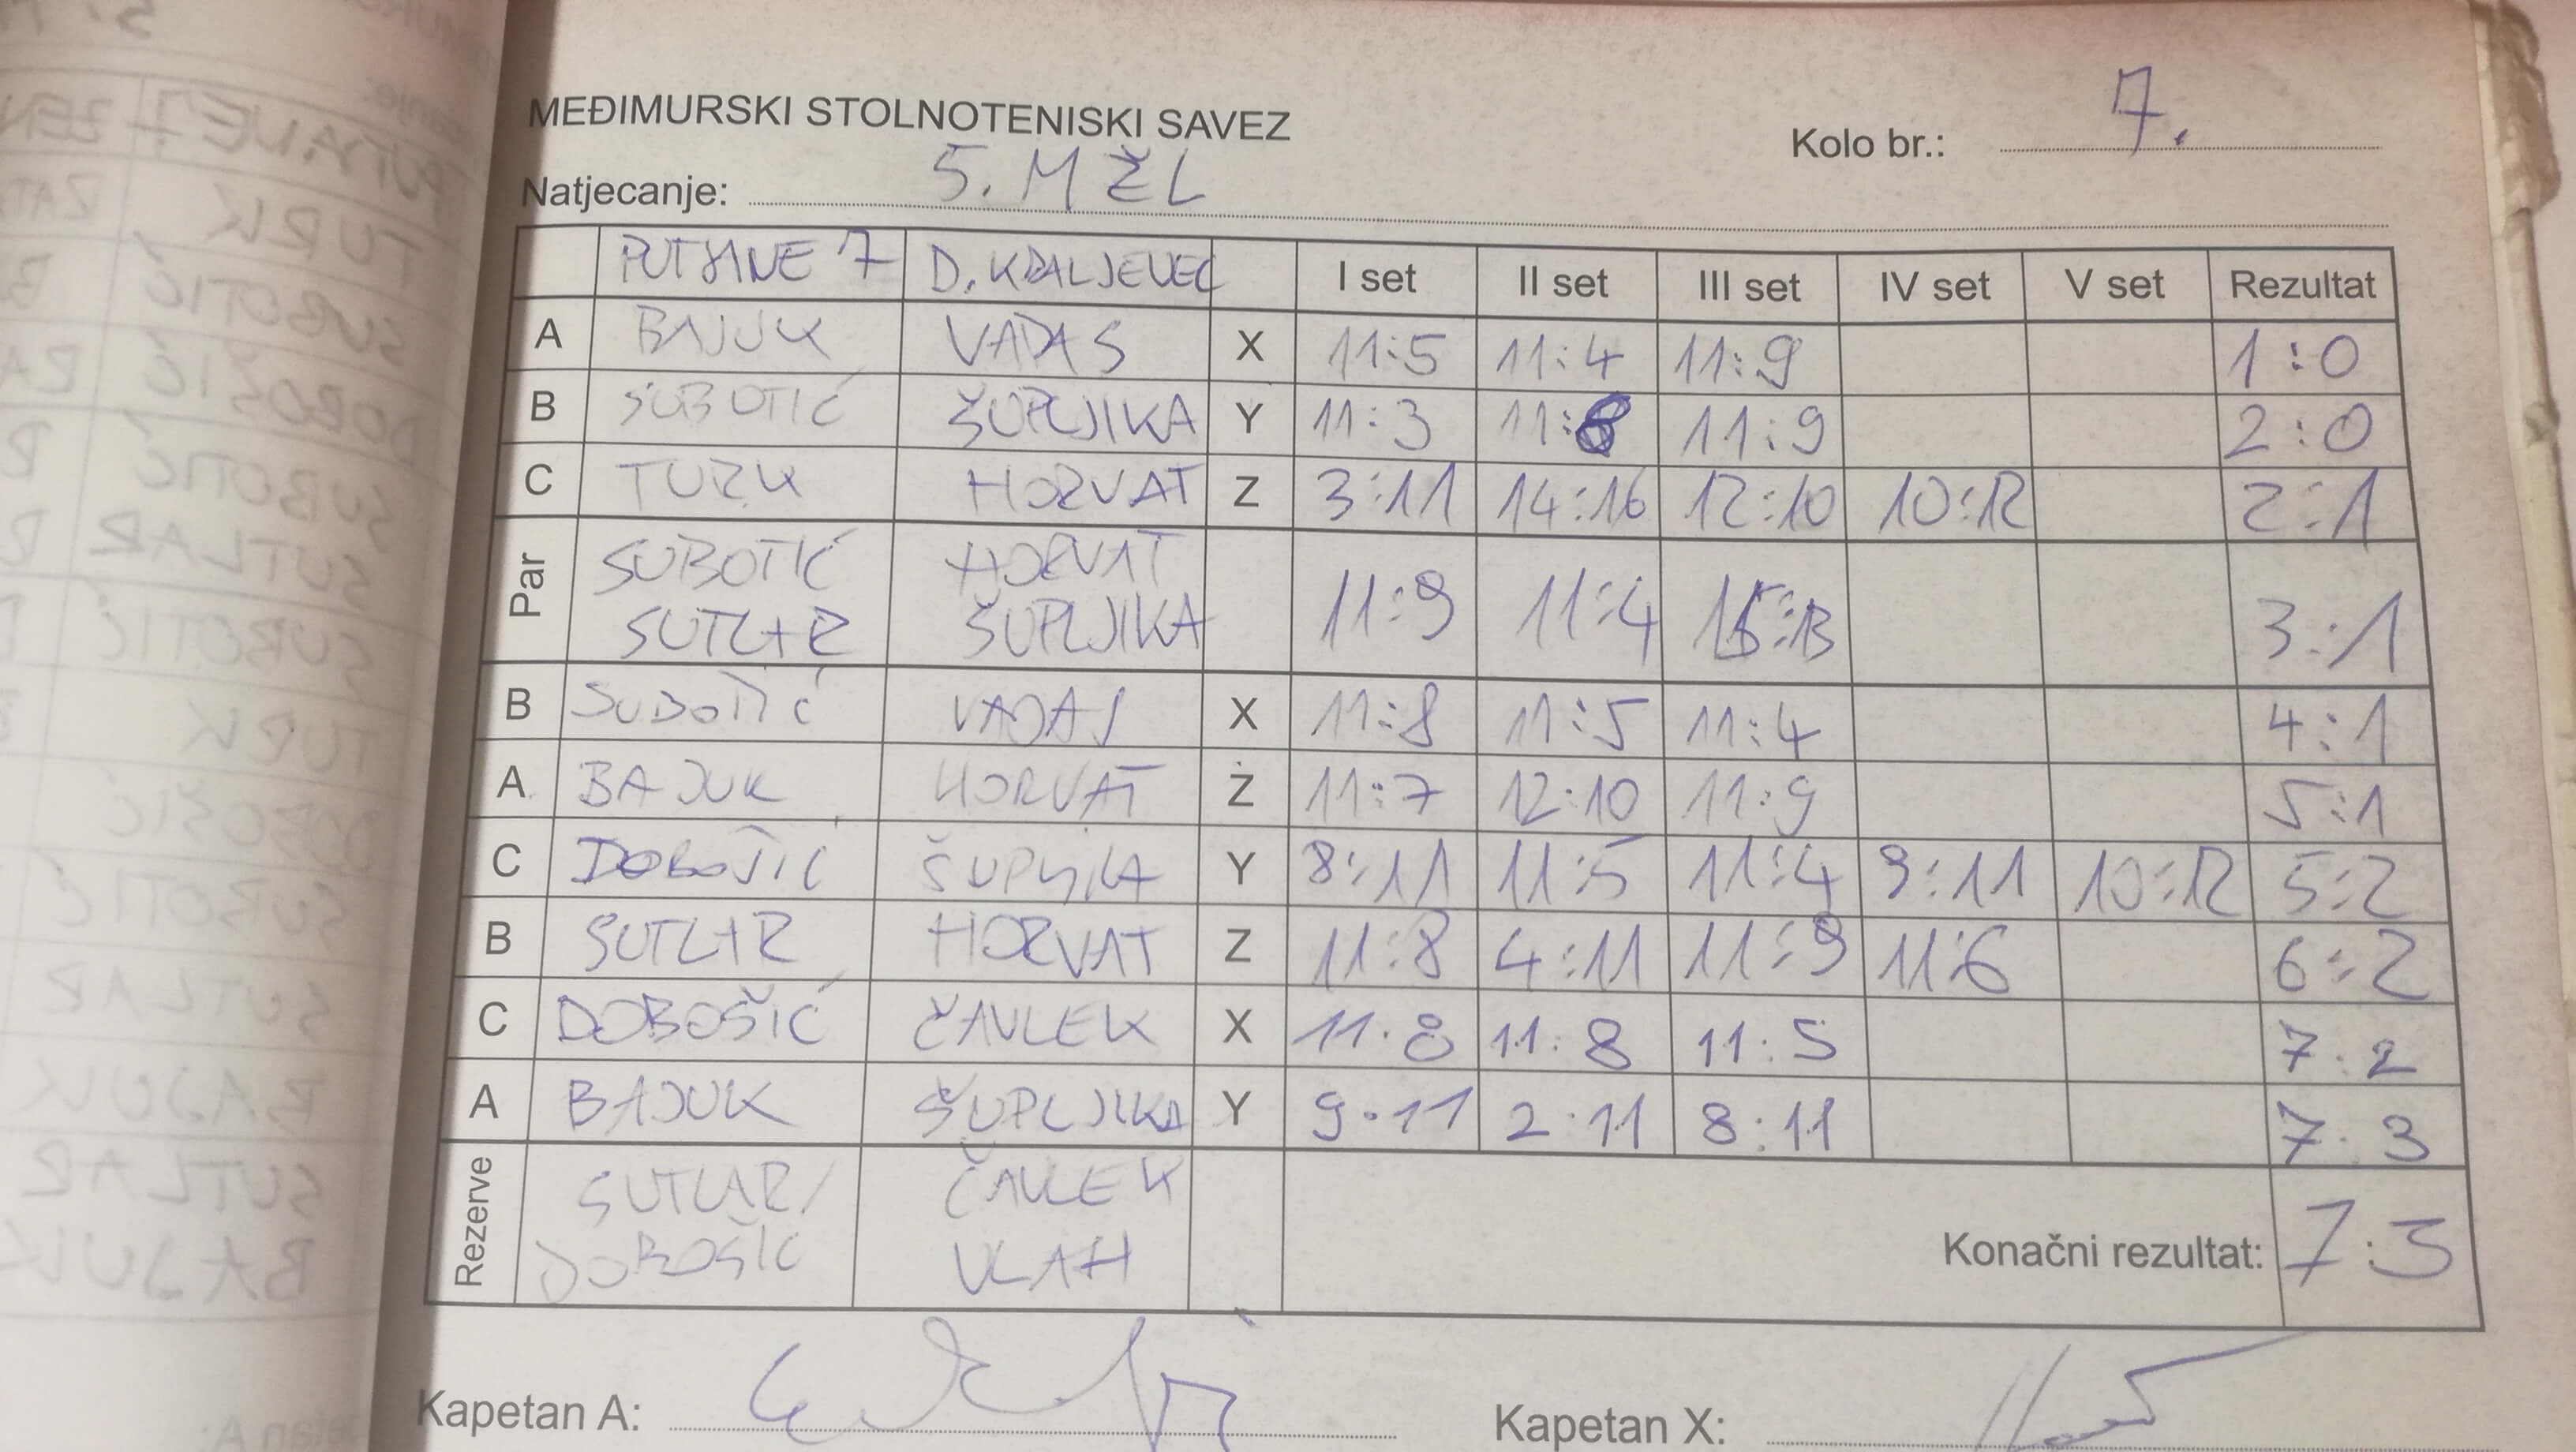 MEĐIMURSKI STOLNOTENISKI SAVEZ
Kolo br.: 7.
Natjecanje: 5. MŽL
PUTJANE 7 D. KRALJEVEC I set II set III set IV set V set Rezultat
A BAJUK VADAS X 11:5 11:4 11:9 1:0
B SUBOTIĆ ŠUPLJIKA Y 11:3 11:8 11:9 2:0
C TURK HORVAT Z 3:11 14:16 12:10 10:12 2:1
Par SUBOTIĆ HORVAT
SUTLAR ŠUPLJIKA 11:9 11:4 15:13 3:1
B SUBOTIĆ VADAS X 11:8 11:5 11:4 4:1
A BAJUK HORVAT Z 11:7 12:10 11:9 5:1
C DOBOŠIĆ ŠUPLJIKA Y 8:11 11:5 11:4 9:11 10:12 5:2
B SUTLAR HORVAT Z 11:8 4:11 11:9 11:6 6:2
C DOBOŠIĆ ČAVLEK X 11:8 11:8 11:5 7:2
A BAJUK ŠUPLJIKA Y 9:11 2:11 8:11 7:3
Rezerve SUTLAR/ ČAVLEK
DOBOŠIĆ VLAH Konačni rezultat: 7:3
Kapetan A: Kapetan X: